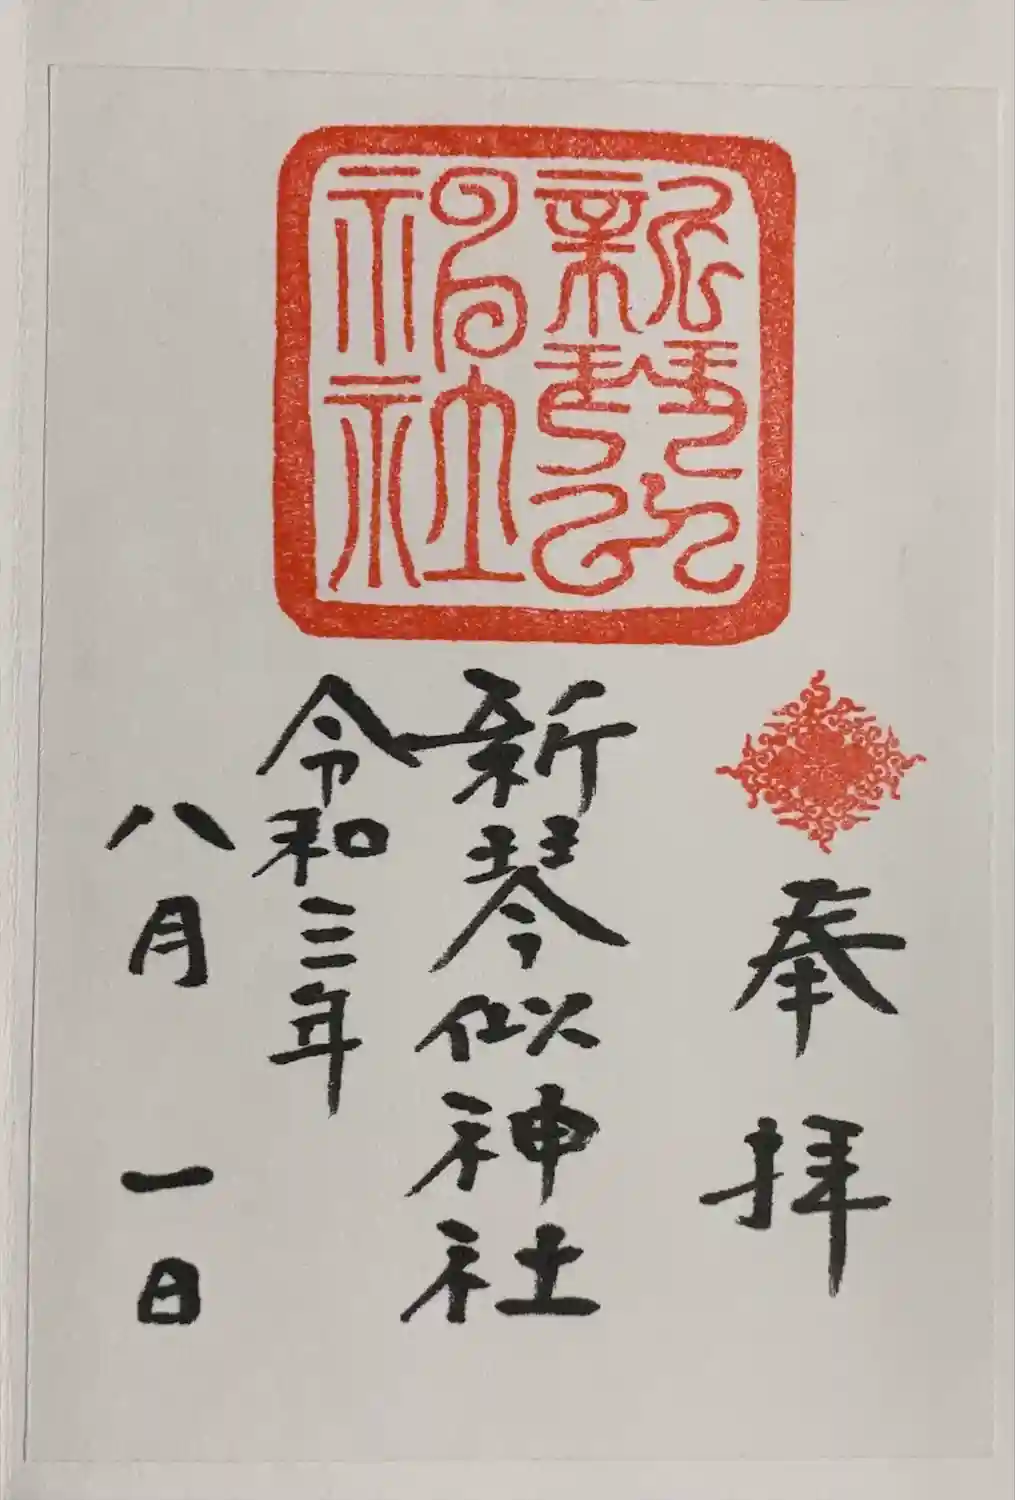 新琴似
神社
奉拝
新琴似神社
令和三年
八月一日